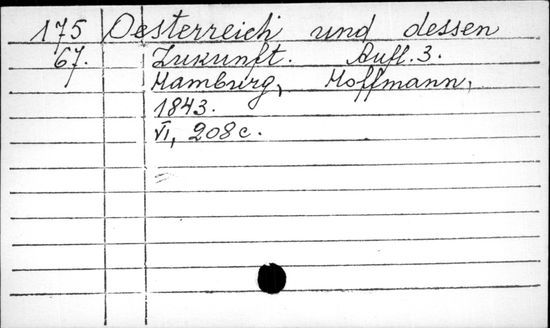 175 Oesterreich und dessen
67. Zukunft. Aufl. 3.
Hamburg, Hoffmann,
1843.
VI, 208 c.